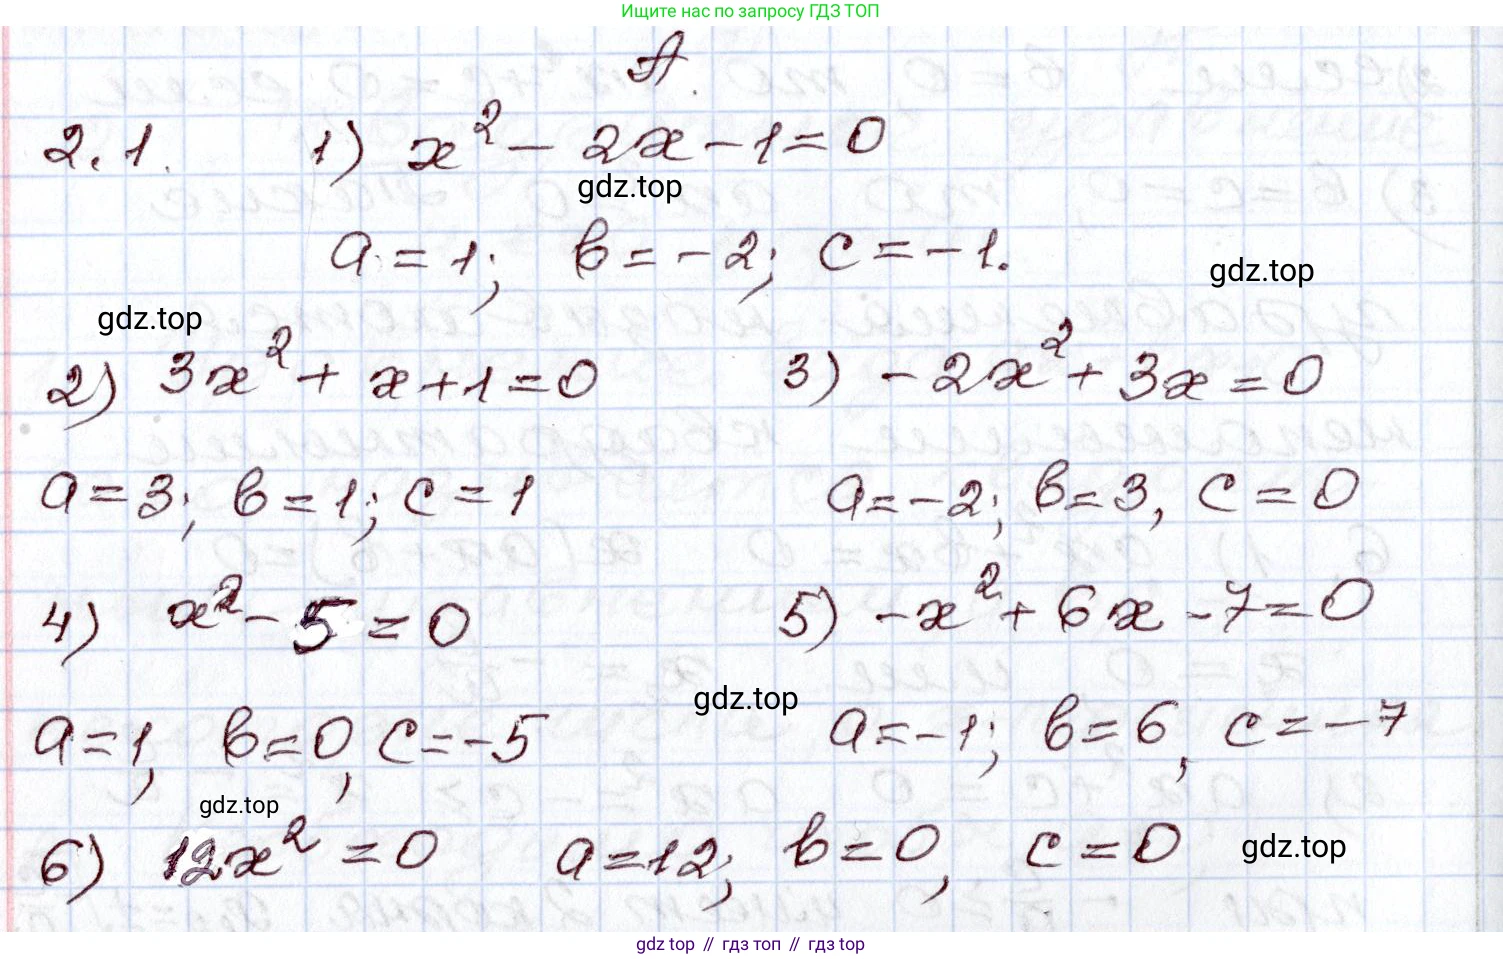 Ищите нас по запросу ГДЗ ТОП
А.
2.1. 1) x² - 2x - 1 = 0
gdz.top
a = 1; b = -2; c = -1.
gdz.top
gdz.top
2) 3x² + x + 1 = 0 3) -2x² + 3x = 0
a = 3; b = 1; c = 1 a = -2; b = 3, c = 0
4) x² - 5 = 0 5) -x² + 6x - 7 = 0
gdz.top
a = 1, b = 0, c = -5 a = -1; b = 6, c = -7
gdz.top
6) 12x² = 0 a = 12; b = 0, c = 0 gdz.top
gdz top // гдз топ // гдз top